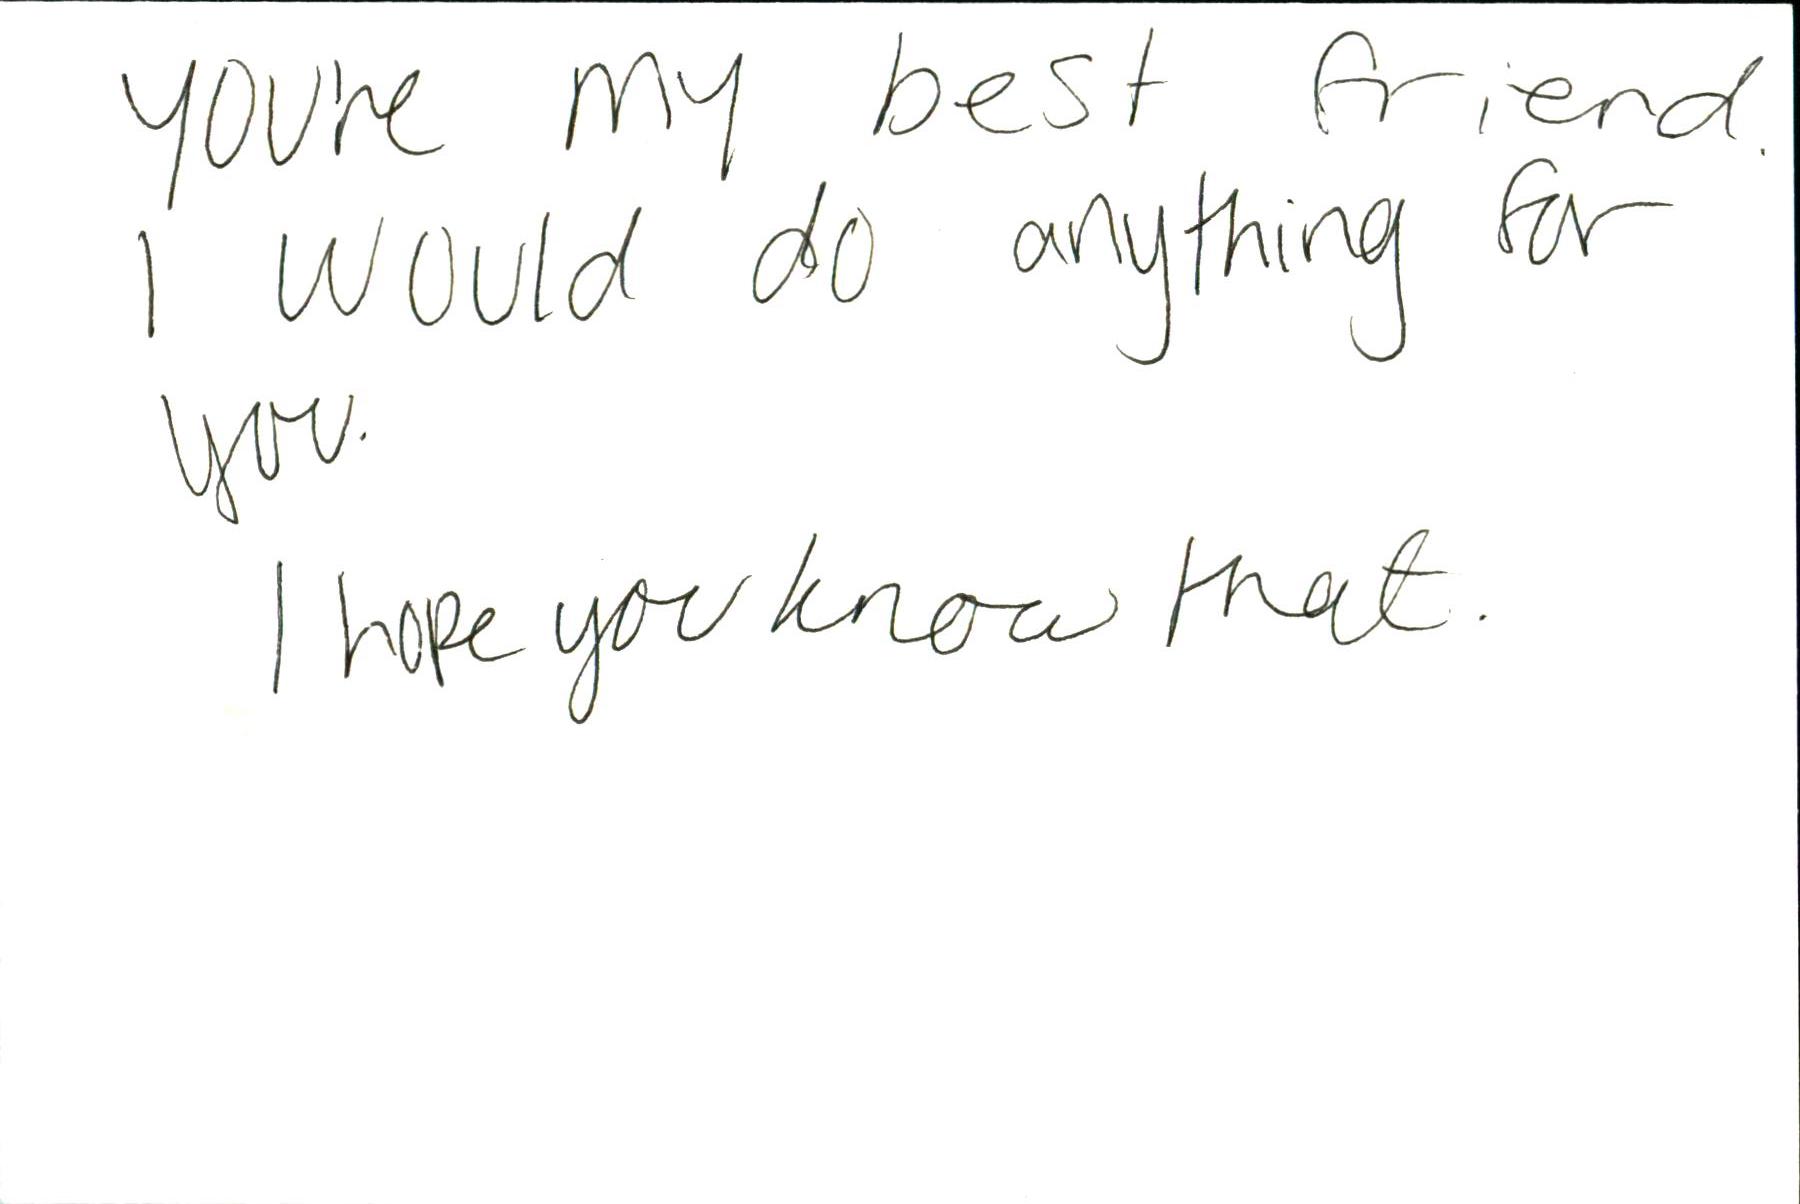 you're my best friend.
I would do anything for
you.
I hope you know that.